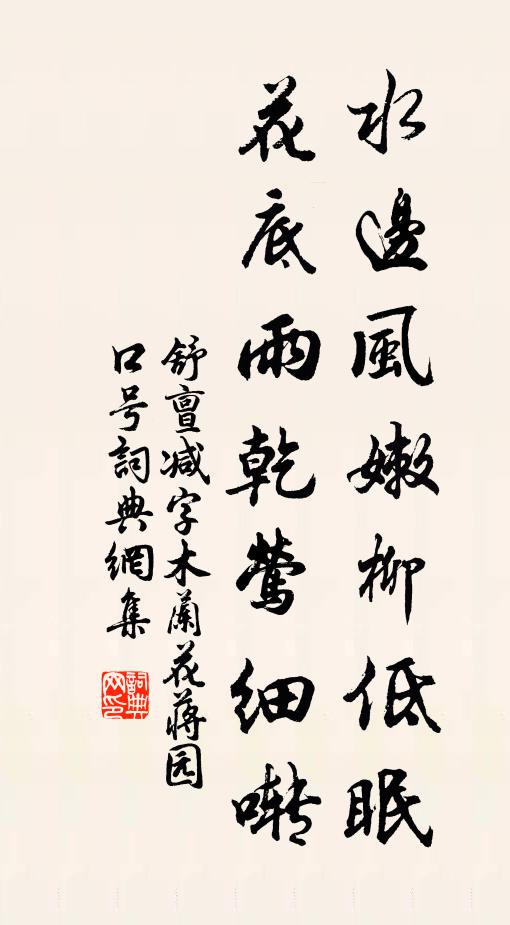 水邊風嫩柳低眠
花底雨乾鶯細囀
舒亶减字木蘭花蔣园
口号詞典網集
詞典网印